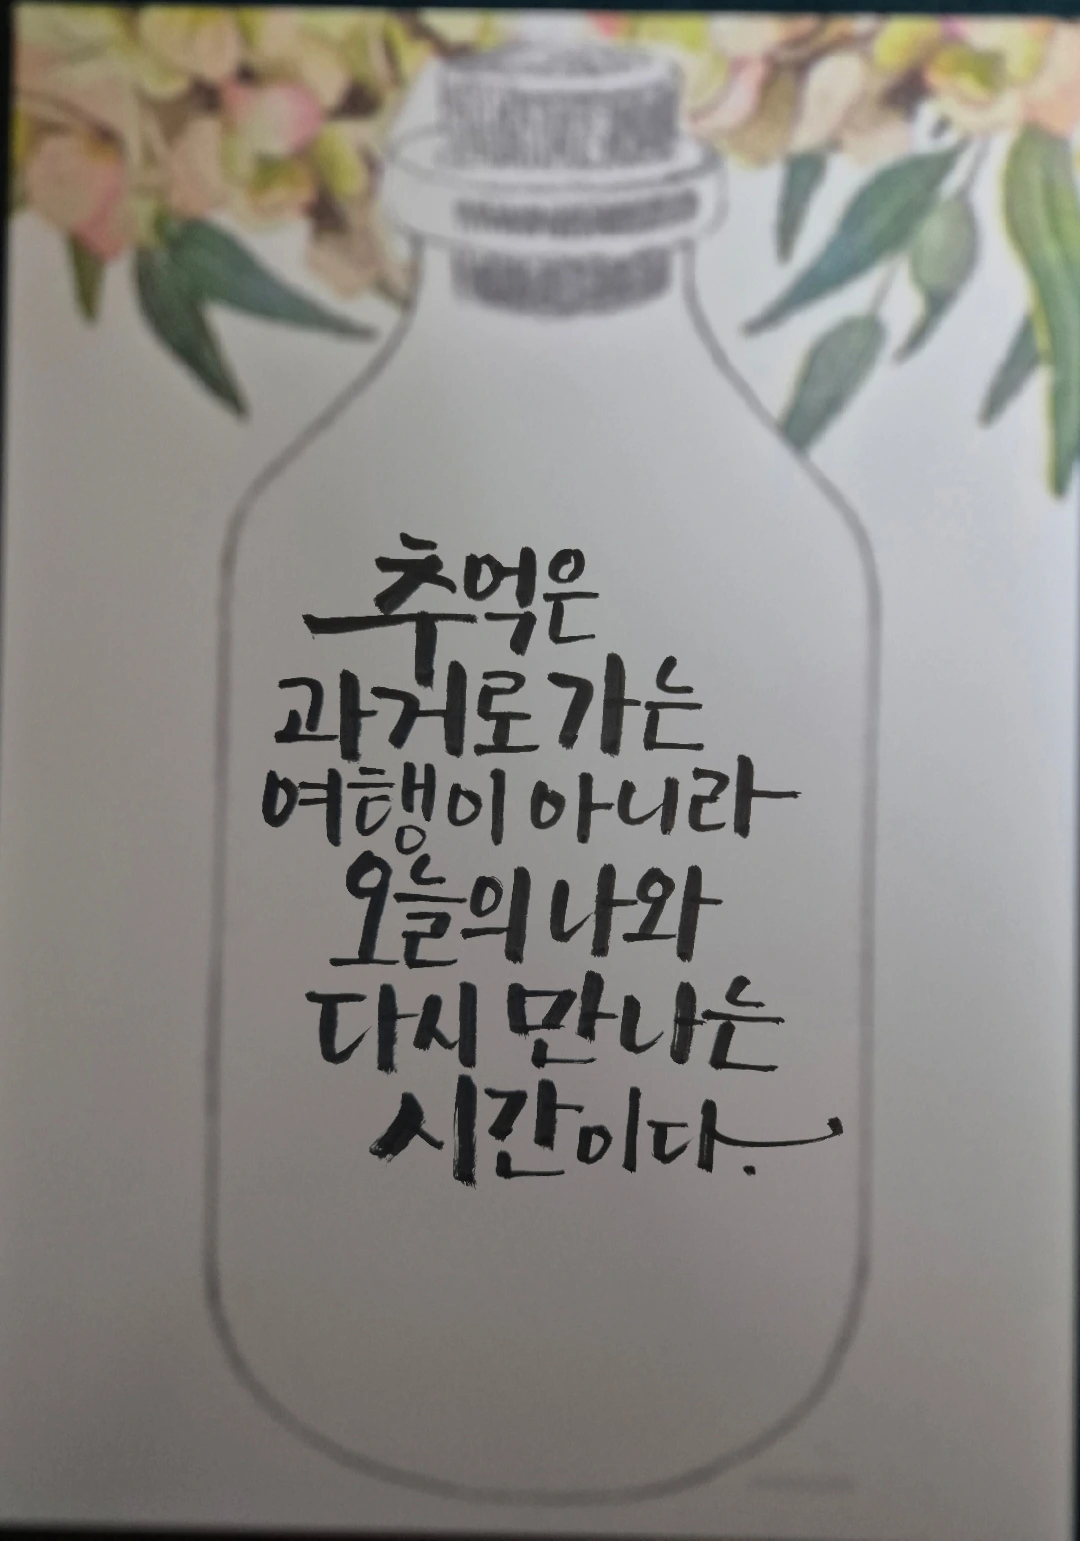 추억은
과거로 가는
여행이 아니라
오늘의 나와
다시 만나는
시간이다.